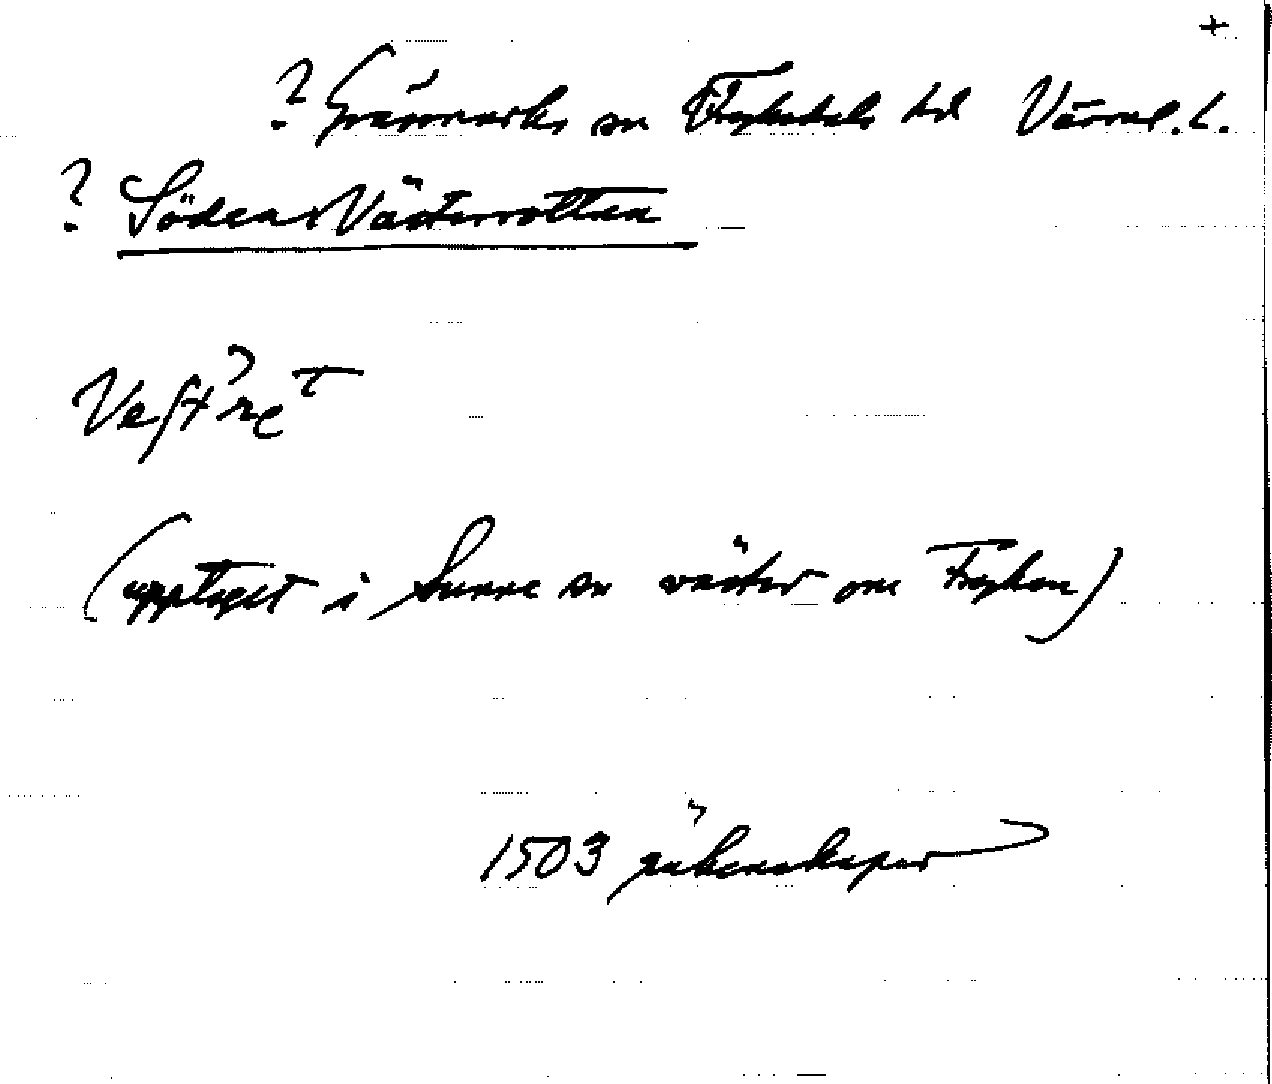 +
? Gräsmarks sn Fryksdals hd Värml. l.
? Södra Västerrottna
(upptaget i Sunne sn väster om Fryken)
1503 räkenskaper